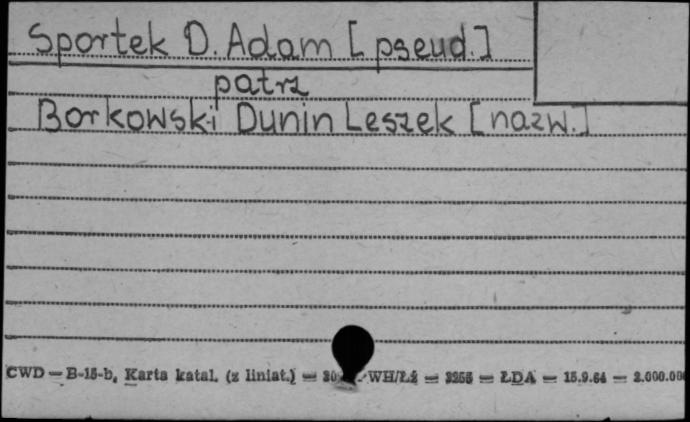 Sportek D. Adam [pseud.]
patrz
Borkowski Dunin Leszek [nazw.]
CWD — B-15-b, Karta katal. (z liniat.) — WH/Łż — 3255 — ŁDA — 15.9.64 — 2.000.00